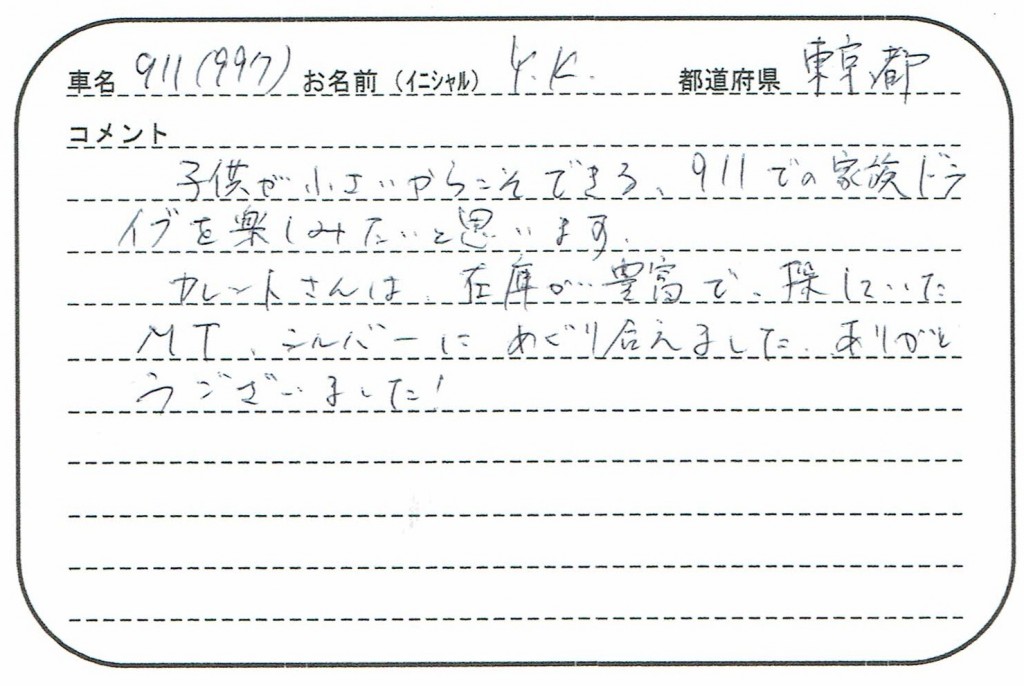 車名 911(997) お名前(イニシャル) Y.K. 都道府県 東京都
コメント
子供が小さいからこそできる、911での家族ドラ
イブを楽しみたいと思います。
カレントさんは、在庫が豊富で、探していた
MT、シルバーにめぐり合えました。ありがと
うございました!